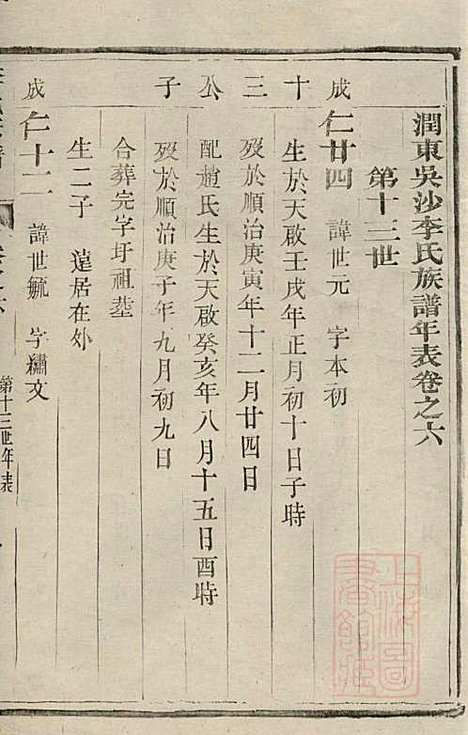 潤東吳沙李氏族譜年表卷之六
第十三世
成仁廿四 諱世元 字本初
十 生於天啟壬戌年正月初十日子時
三 歿於順治庚寅年十二月廿四日
公 配趙氏生於天啟癸亥年八月十五日酉時
子 歿於順治庚子年九月初九日
合葬完字圩祖塋
生二子 遠居在外
成仁十二 諱世毓 字繡文
第十三世年表